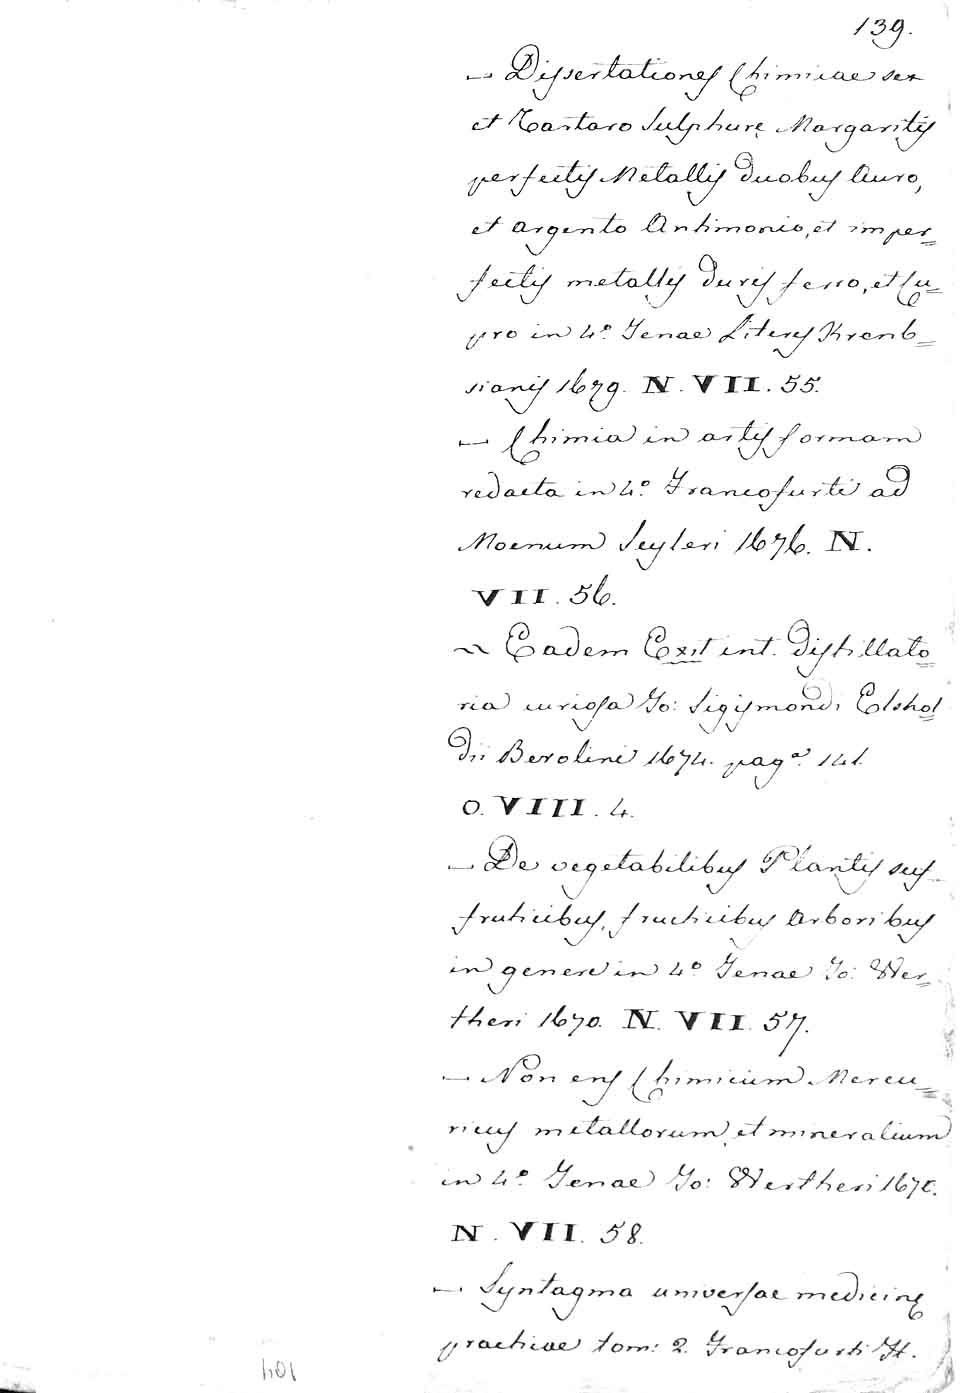 139.
— Dissertationes Chimicae sex
et Tartaro Sulphure Margaritis
perfectis Metallis duobus Auro,
et argento Antimonio, et imper=
fectis metallis duris ferro, et Cu=
pro in 4.º Jenae Literis Krenb=
sianis 1679. N. VII. 55.
— Chimia in artis formam
redacta in 4.º Francofurti ad
Moenum Seyleri 1676. N.
VII. 56.
~ Eadem Exit int. distillato=
ria curiosa Jo: Sigismondi Elshol=
dii Berolini 1674. pag.ª 141.
O. VIII. 4.
— De vegetabilibus Plantis suf=
fruticibus, fructicibus Arboribus
in genere in 4.º Jenae Jo: Wer=
theri 1670. N. VII. 57.
— Non ens Chimicum Mercu=
rius metallorum, et mineralium
in 4.º Jenae Jo: Wertheri 1670.
N. VII. 58.
— Syntagma universae medicinę
practicae tom: 2. Francofurti H.
104